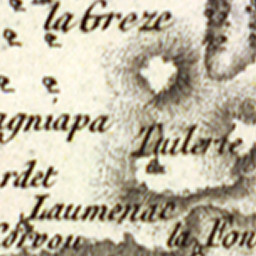 la Greze
agniapa
Tuilerie
rdet
Laumenac
Corvou
la Fou